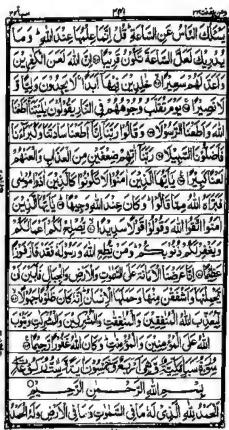 يَسْئَلُكَ النَّاسُ عَنِ السَّاعَةِ قُلْ اِنَّمَا عِلْمُهَا عِنْدَ اللّٰهِ وَمَا
يُدْرِيْكَ لَعَلَّ السَّاعَةَ تَكُوْنُ قَرِيْبًا اِنَّ اللّٰهَ لَعَنَ الْكٰفِرِيْنَ
وَاَعَدَّ لَهُمْ سَعِيْرًا خٰلِدِيْنَ فِيْهَا اَبَدًا لَا يَجِدُوْنَ وَلِيًّا وَّ
لَا نَصِيْرًا يَوْمَ تُقَلَّبُ وُجُوْهُهُمْ فِي النَّارِ يَقُوْلُوْنَ يٰلَيْتَنَا اَطَعْنَا
اللّٰهَ وَاَطَعْنَا الرَّسُوْلَا وَقَالُوْا رَبَّنَا اِنَّا اَطَعْنَا سَادَتَنَا وَكُبَرَآءَنَا
فَاَضَلُّوْنَا السَّبِيْلَا رَبَّنَا اٰتِهِمْ ضِعْفَيْنِ مِنَ الْعَذَابِ وَالْعَنْهُمْ
لَعْنًا كَبِيْرًا يٰاَيُّهَا الَّذِيْنَ اٰمَنُوْا لَا تَكُوْنُوْا كَالَّذِيْنَ اٰذَوْا مُوْسٰى
فَبَرَّاَهُ اللّٰهُ مِمَّا قَالُوْا وَكَانَ عِنْدَ اللّٰهِ وَجِيْهًا يٰاَيُّهَا الَّذِيْنَ
اٰمَنُوا اتَّقُوا اللّٰهَ وَقُوْلُوْا قَوْلًا سَدِيْدًا يُّصْلِحْ لَكُمْ اَعْمَالَكُمْ
وَيَغْفِرْ لَكُمْ ذُنُوْبَكُمْ وَمَنْ يُّطِعِ اللّٰهَ وَرَسُوْلَهٗ فَقَدْ فَازَ فَوْزًا
عَظِيْمًا اِنَّا عَرَضْنَا الْاَمَانَةَ عَلَى السَّمٰوٰتِ وَالْاَرْضِ وَالْجِبَالِ فَاَبَيْنَ اَنْ
يَّحْمِلْنَهَا وَاَشْفَقْنَ مِنْهَا وَحَمَلَهَا الْاِنْسَانُ اِنَّهٗ كَانَ ظَلُوْمًا جَهُوْلًا
لِّيُعَذِّبَ اللّٰهُ الْمُنٰفِقِيْنَ وَالْمُنٰفِقٰتِ وَالْمُشْرِكِيْنَ وَالْمُشْرِكٰتِ وَيَتُوْبَ
اللّٰهُ عَلَى الْمُؤْمِنِيْنَ وَالْمُؤْمِنٰتِ وَكَانَ اللّٰهُ غَفُوْرًا رَّحِيْمًا
بِسْمِ اللّٰهِ الرَّحْمٰنِ الرَّحِيْمِ
اَلْحَمْدُ لِلّٰهِ الَّذِيْ لَهٗ مَا فِي السَّمٰوٰتِ وَمَا فِي الْاَرْضِ وَلَهُ الْحَمْدُ